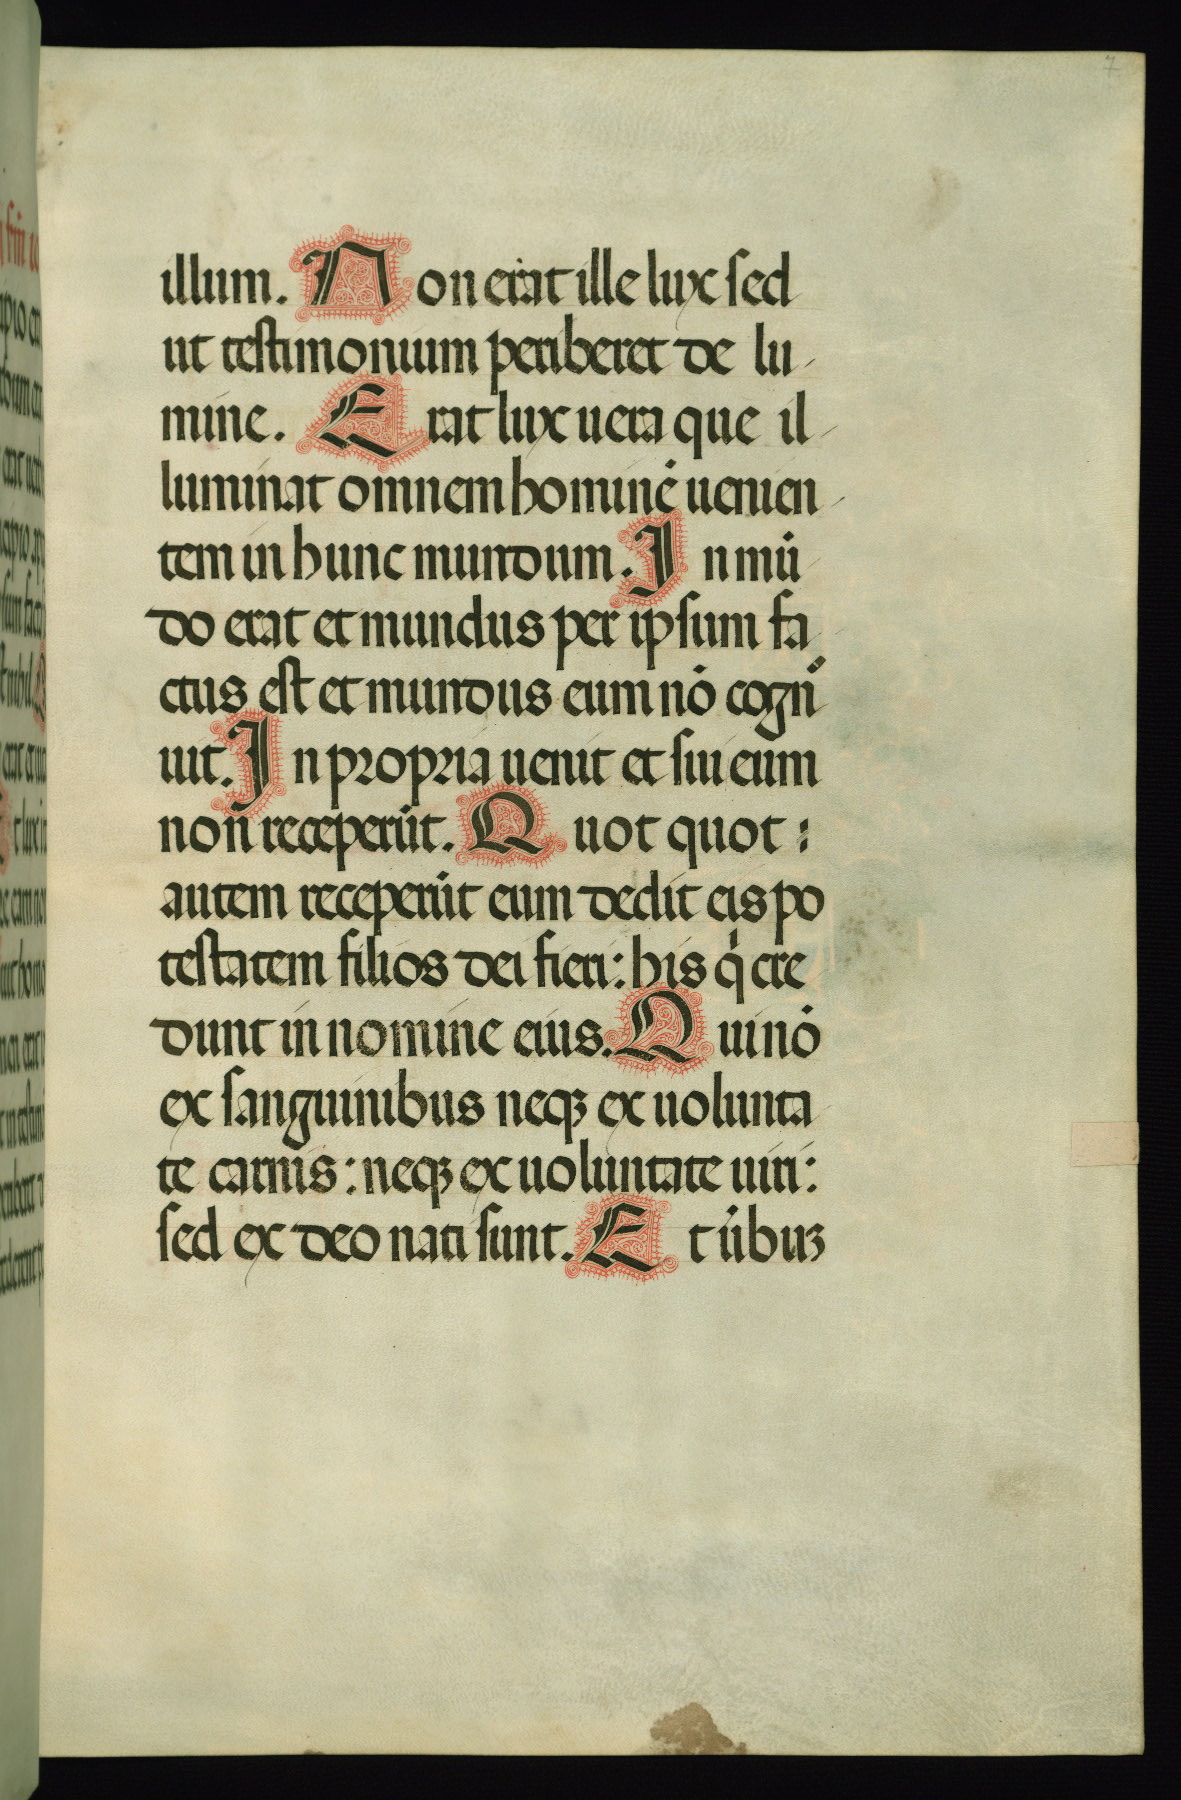 7
illum. Non erat ille lux sed
ut testimonium periberet de lu
mine. Erat lux uera que il
luminat omnem hominē uenien
tem in hunc mundum. In mū
do erat et mundus per ipsum fa
ctus est et mundus eum nō cogno
uit. In propria uenit et sui eum
non receperūt. Quot quot :
autem receperūt eum dedit eis po
testatem filios dei fieri: his qͥ cre
dunt in nomine eius. Qui nō
ex sanguinibus neqꝫ ex uolunta
te carnis: neqꝫ ex uoluntate uiri:
sed ex deo nati sunt. Et ūbuꝫ